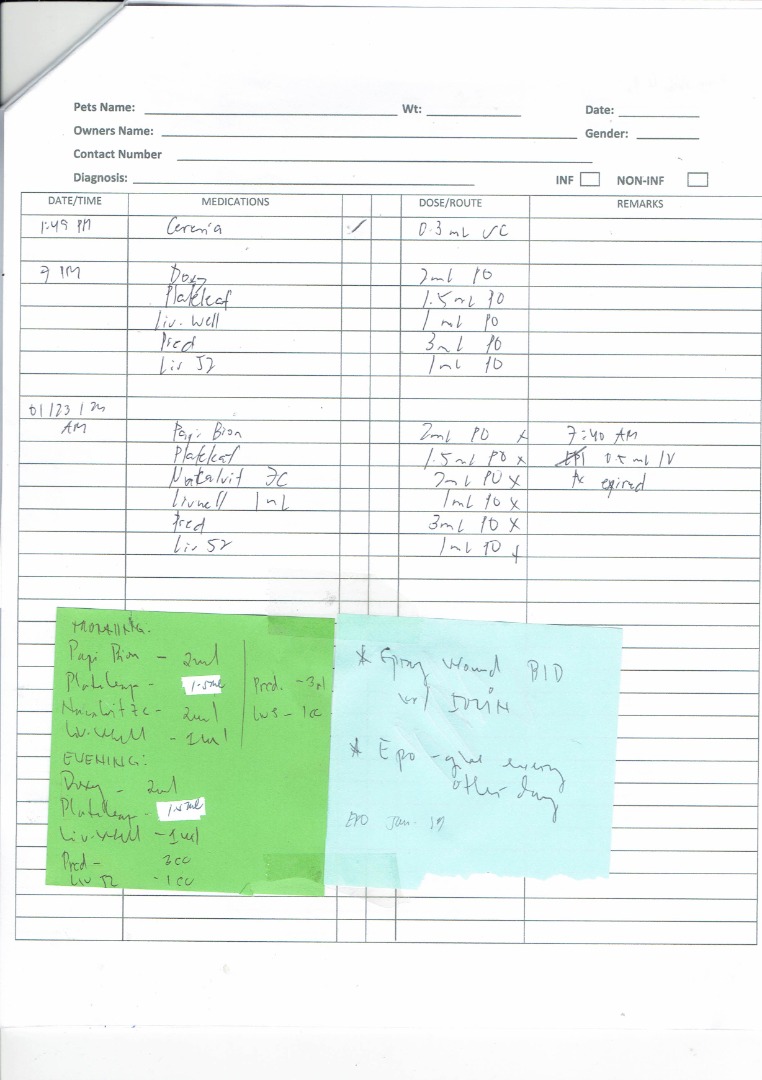 Pets Name: Wt: Date:
Owners Name: Gender:
Contact Number
Diagnosis: INF NON-INF
DATE/TIME MEDICATIONS DOSE/ROUTE REMARKS
1:49 PM Cerenia 0.3 mL SC
Doxy 2mL PO
Plateleaf 1.5mL PO
Liv. Well 1 mL PO
Pred 3mL PO
Liv 52 1mL PO
01/23/
AM Papi Bion 2mL PO x 7:40 AM
Plateleaf 1.5mL PO x 0.5 mL IV
2mL PO x expired
Livwell 1mL 1mL PO x
Pred 3mL PO x
Liv 52 1mL PO x
MORNING:
Papi Bion - 2ml
Plateleap - 1.5ml Pred. - 3ml
- 2ml - 1cc
Liv-Well - 1ml
EVENING:
Doxy - 2ml
Plateleap - 1.5ml
Liv-Well - 1ml
Pred - 3cc
Liv 52 - 1cc
* Spray wound BID
w/
* Epo - give every
other day
EPO Jan. 19